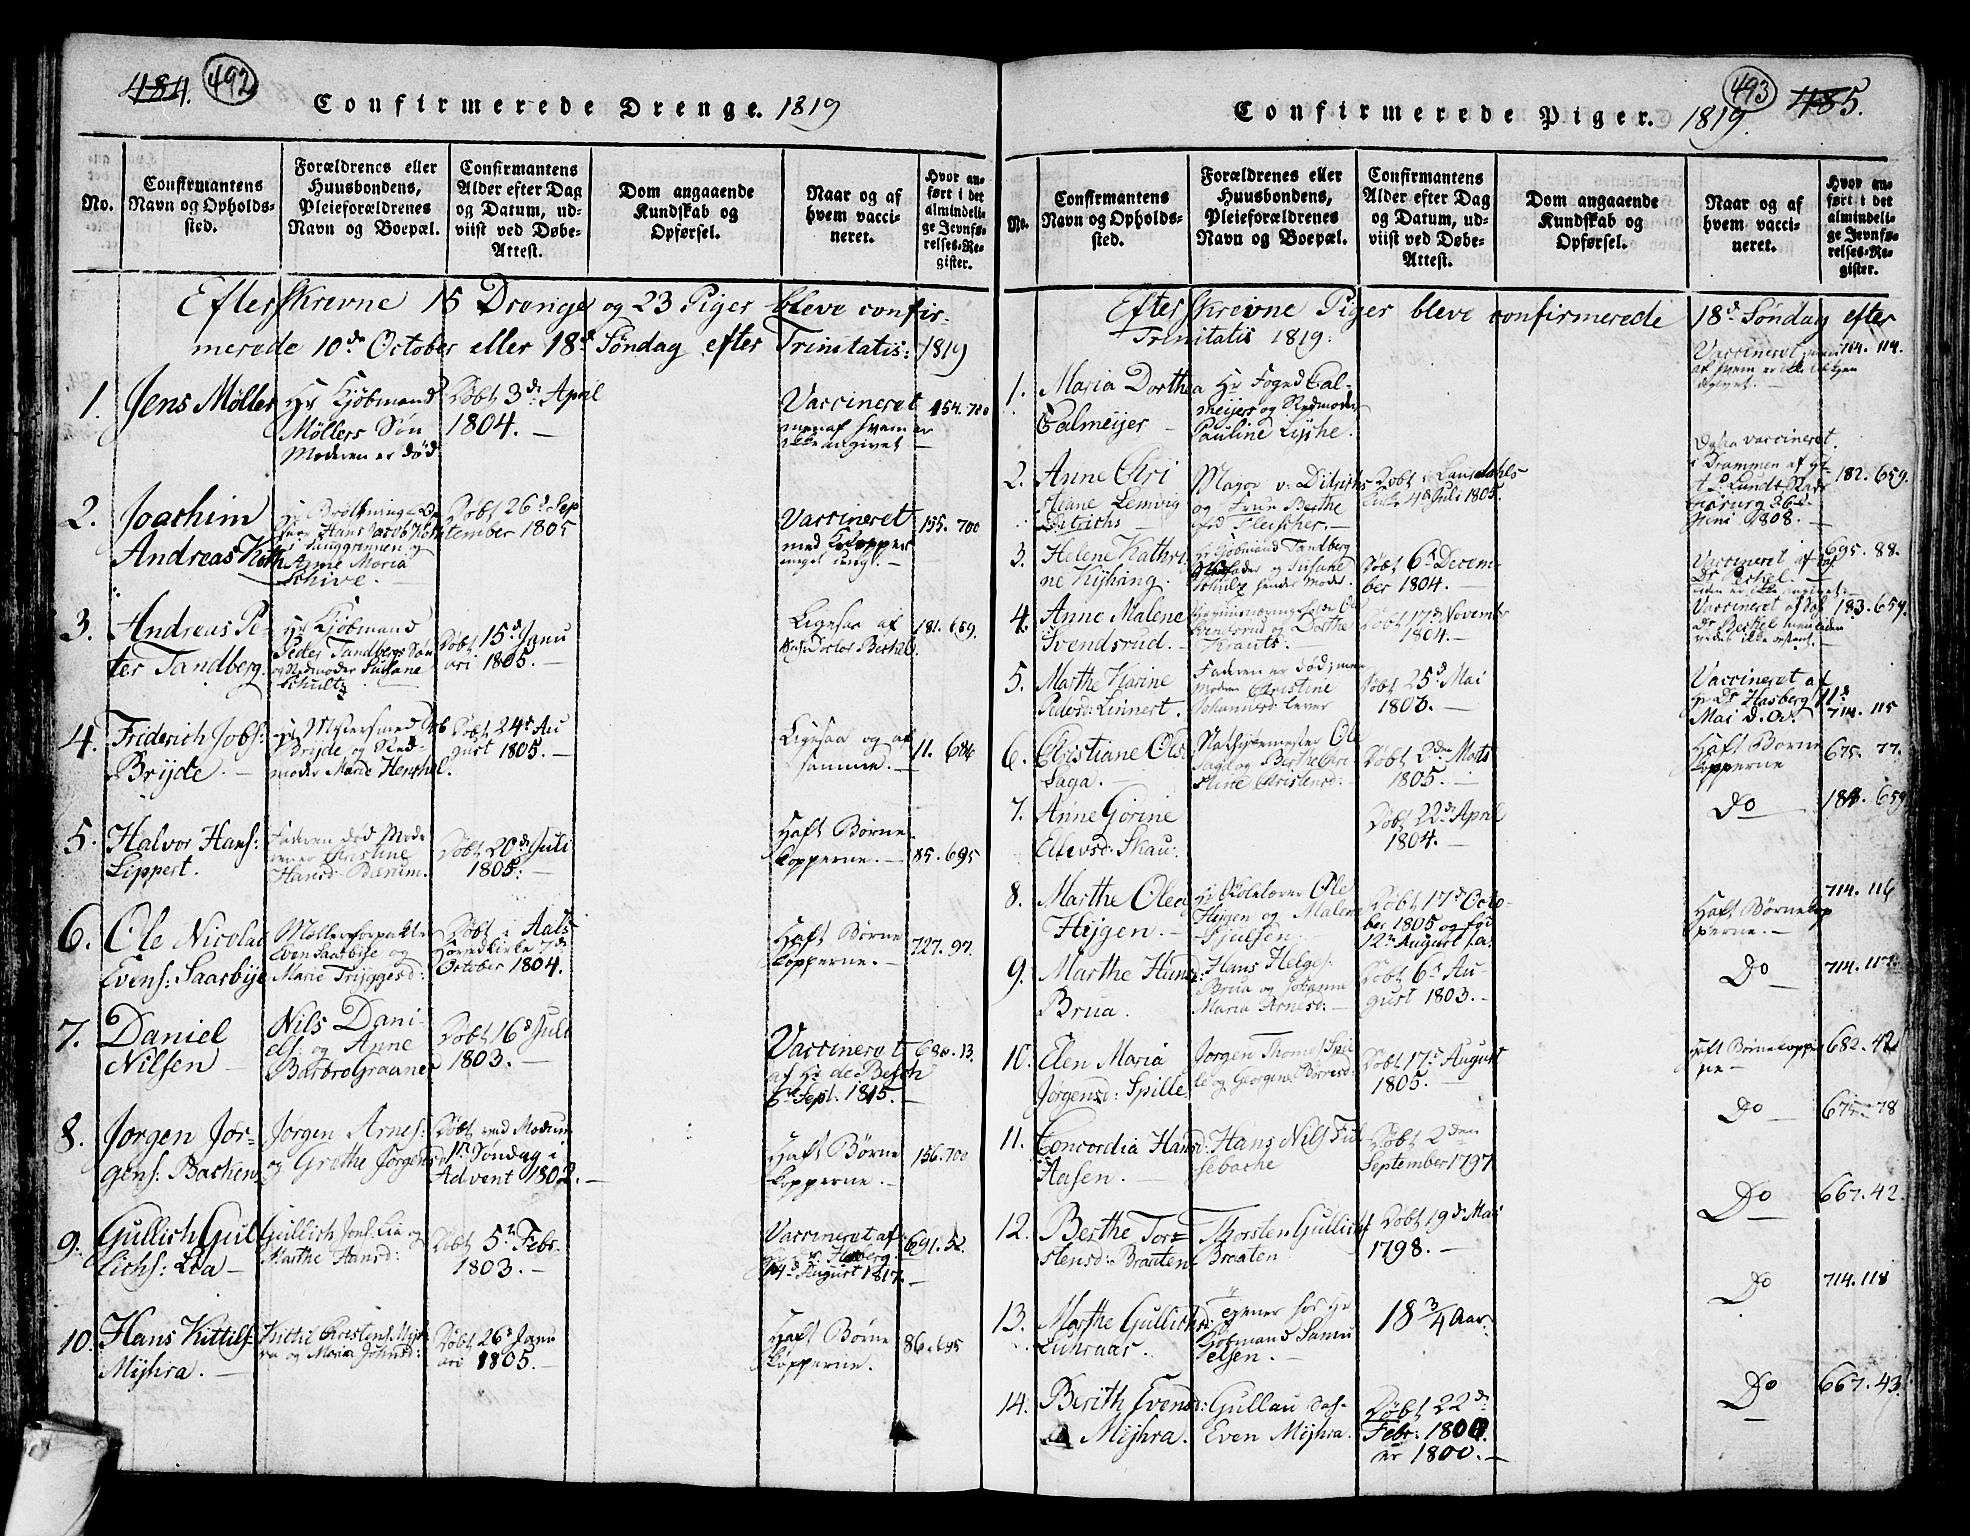 484. 492
Confirmerede Drenge. 1819
No.
Confirmantens Navn og Opholdssted.
Forældrenes eller Huusbondens, Pleieforældrenes Navn og Boepæl.
Confirmantens Alder efter Dag og Datum, udviist ved Døbe-Attest.
Dom angaaende Kundskab og Opførsel.
Naar og af hvem vaccineret.
Hvor anført i det almindelige Jevnførelses-Register.
Efterskrevne 15 Drenge og 23 Piger bleve confir-
merede 10de October eller 18de Søndag efter Trinitatis: 1819
1. Jens Møller
Hr Kjøbmand
Møllers Søn
Moderen er død
Døbt 3de April
1804. —
Vaccineret
men af hvem er
ikke angivet
154. 700
2. Joachim
Andreas Koth
Anne Maria
Schive. —
Døbt 26d Sep
tember 1805
Vaccineret
med Kokopper
155. 700
3. Andreas Pe-
ter Tandberg.
Hr Kjøbmand
Peder Tandbergs Søn
og Stedmoder Susane
Schultz
Døbt 15d Janu
ari 1805. —
Ligesaa af
181. 659.
4. Friderich Jobs:
Brijde. —
Brijde og Sted-
moder Marie Henschel.
Døbt 24d Au
gust 1805. —
Ligesaa og af
samme. —
11. 686
5. Halvor Hans:
Lippert.
Faderen død Mode
ren er Christine
Hansd: Bærum.
Døbt 20de Juli
1805: —
Haft Børne-
kopperne. —
85. 695
6. Ole Nicolai
Evens: Saarbije
Møllerforpakter
Even Saarbije og
Marie Trijggesd:
Døbt i Aals
Hovedkirke 7de
October 1804.
Haft Børne
kopperne. —
727. 97.
7. Daniel
Nilsen —
Nils Dani-
els: og Anne
Barbro Graane
Døbt 16d Juli
1803. —
Vaccineret
af Hr de Besch
6d Sept. 1815. —
680. 13.
8. Jørgen Jør-
gens: Backen
Jørgen Arnes:
og Grethe Jørgensd:
Døbt ved Modum
1ste Søndag i
Advent 1802. —
Haft Børne
kopperne. —
156. 700
9. Gullich Gul
lichs: Lia —
Gullich Jons: Lia og
Marthe Hansd:
Døbt 5te Febr.
1803. —
Vaccineret af
14d August 1817. —
691. 52.
10. Hans Kittils:
Mijhra. —
Kittil Christens: Mijh
ra og Maria Johnsd:
Døbt 26d Janu
ari 1805. —
Haft Børne
kopperne. —
86. 695
493 485.
Confirmerede Piger. 1819.
No.
Confirmantens Navn og Opholdssted.
Forældrenes eller Huusbondens, Pleieforældrenes Navn og Boepæl.
Confirmantens Alder efter Dag og Datum, udviist ved Døbe-Attest.
Dom angaaende Kundskab og Opførsel.
Naar og af hvem vaccineret.
Hvor anført i det almindelige Jevnførelses-Register.
Efterskrevne Piger bleve confirmerede 18d Søndag efter
Trinitatis 1819:
1. Maria Dorthea
Calmeijer —
Hr Foged Cal-
meijers og Stedmoder
Pauline Lijche.
Vaccineret men
af hvem er ikke
714. 114.
2. Anne Chri
stiane Lemvig
Ditrichs —
Major v: Ditrichs
og Frue Berthe
fød Fleischer. —
Vaccineret
i Drammen af
Juni 1808. —
182. 659.
3. Helene Kathri-
ne Kijhång. —
Hr Kjøbmand Tandberg
Stedfader og Susane
Schultz hendes Moder.
Døbt 6d Decem-
ber 1804. —
Vaccineret af
695. 88.
4. Anne Malene
Svendsrud. —
Svendsrud og Dorthe
Krauts. —
Døbt 17d November
1804. —
Vaccineret af
183. 659.
5. Marthe Karine
Pedersd: Linnert.
Faderen er død, men
Moderen Christine
Johannesd: lever
Døbt 25d Mai
1806. —
Vaccineret af
Hr Dr Hasberg 11d
Mai d. A. —
714. 115
6. Christiane Ols:
Saga. —
Ole
Saga og Berthe Chri
stine Christensd:
Døbt 2den Marts
1805. —
Haft Børne
kopperne
675. 77.
7. Anne Gorine
Ellevsd: Skau:
Døbt 22de April
1804. —
Do
184. 659
8. Marthe Olea
Heijgen. —
Hr Skolelærer Ole
Heijgen og Malene
Sjulsen. —
Døbt 17d Octo-
ber 1805 og fød
12te August s. a.
Haft Børnekop
perne. —
714. 116
9. Marthe Hansd:
Brua.
Hans Helges:
Brua og Johanne
Maria Arnesd: —
Døbt 6d Au-
gust 1803. —
Do
714. 117.
10. Elen Maria
Jørgensd: Spille
Jørgen Thomes: Spil
le og Georgine Børresd:
Døbt 17d August
1805. —
Haft Børnekopper
ne —
682. 42
11. Concordia Hansd:
Aasen. —
Hans Nils: Ful
sebache
Døbt 2den
September 1797
Do
675. 78
12. Berthe Tor-
stensd: Braaten
Thorsten Gullichs:
Braaten.
Døbt 19d Mai
1798. —
Do
667. 42.
13. Marthe Gullichsd:
Luhraas.
Tjener hos Hr
Kjøbmand Samu
elsen. —
18 3/4 Aar.
Do
714. 118
14. Berith Evensd:
Mijhra.
Even Mijhra.
Døbt 22d
Febr: 1800.
er 1800. —
Do
667. 43.